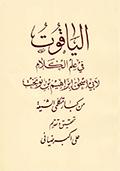 الياقوت
في علم الكلام
لأبي إسحق إبراهيم بن نوبخت
من كبار متكلمي الشيعة
تحقيق وتقديم
علي أكبر ضيائي